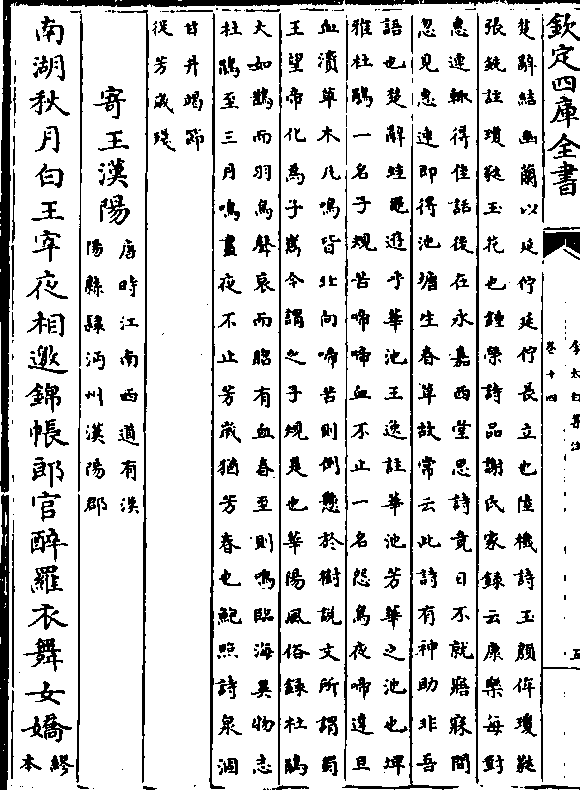 欽定四庫全書
李太白集注
卷十四
五
楚辭結幽蘭以延佇延佇長立也陸機詩玉顔侔瓊蕤
張銑註瓊蕤玉花也鍾嶸詩品謝氏家錄云康樂每對
惠連輒得佳語後在永嘉西堂思詩竟日不就寤寐間
忽見惠連即得池塘生春草故常云此詩有神助非吾
語也楚辭蛙黽遊乎華池王逸註華池芳華之池也埤
雅杜鵑一名子規苦啼啼血不止一名怨鳥夜啼達旦
血漬草木凡鳴皆北向啼苦則倒懸於樹說文所謂蜀
王望帝化爲子嶲今謂之子規是也華陽風俗錄杜鵑
大如鵲而羽烏聲哀而吻有血春至則鳴臨海異物志
杜鵑至三月鳴晝夜不止芳歲猶芳春也鮑照詩泉涸
甘井竭節
徙芳歲殘
寄王漢陽
唐時江南西道有漢
陽縣隸沔州漢陽郡
南湖秋月白王宰夜相邀錦帳郎官醉羅衣舞女嬌
繆
本